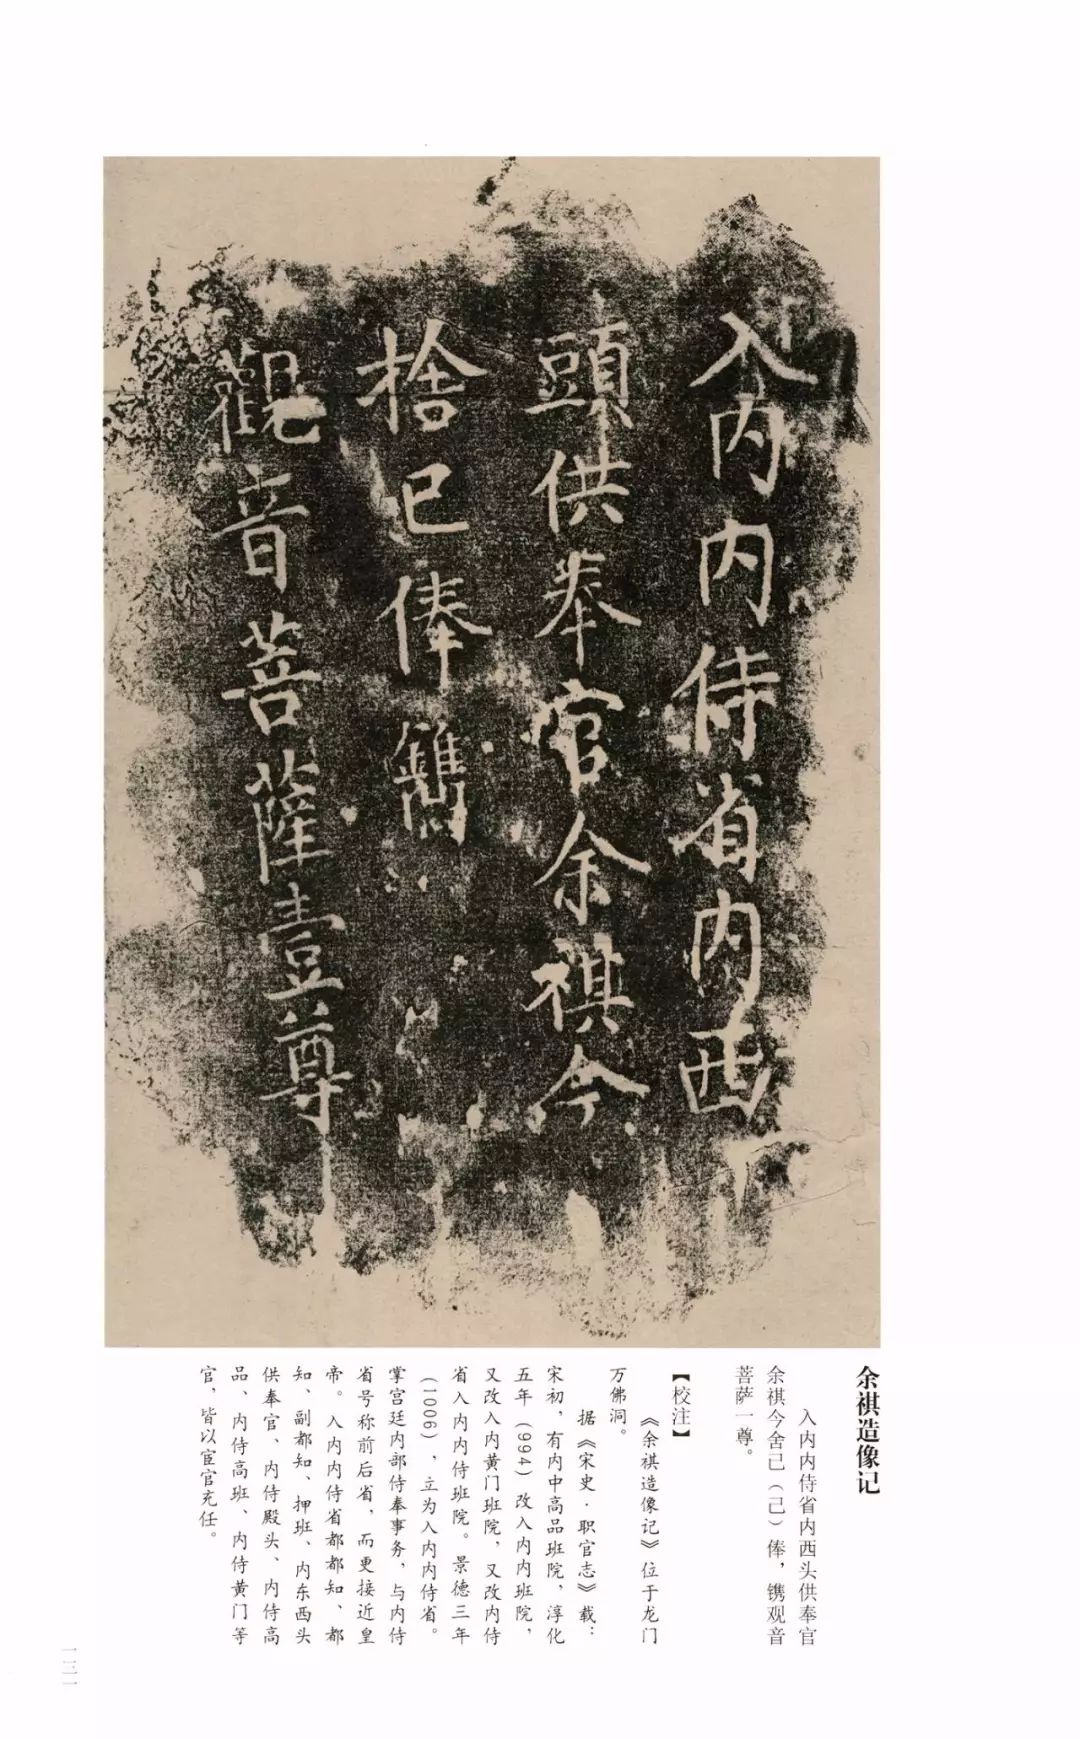 入内内侍省内西
頭供奉官余祺今
捨已俸鐫
觀音菩薩壹尊
余祺造像记
入内内侍省内西头供奉官
余祺今舍已（己）俸，镌观音
菩萨一尊。
【校注】
《余祺造像记》位于龙门
万佛洞。
据《宋史·职官志》载：
宋初，有内中高品班院，淳化
五年（994）改入内内班院，
又改入内黄门班院，又改内侍
省入内内侍班院。景德三年
（1006），立为入内内侍省。
掌宫廷内部侍奉事务，与内侍
省号称前后省，而更接近皇
帝。入内内侍省都都知、都
知、副都知、押班、内东西头
供奉官、内侍殿头、内侍高
品、内侍高班、内侍黄门等
官，皆以宦官充任。
一三一